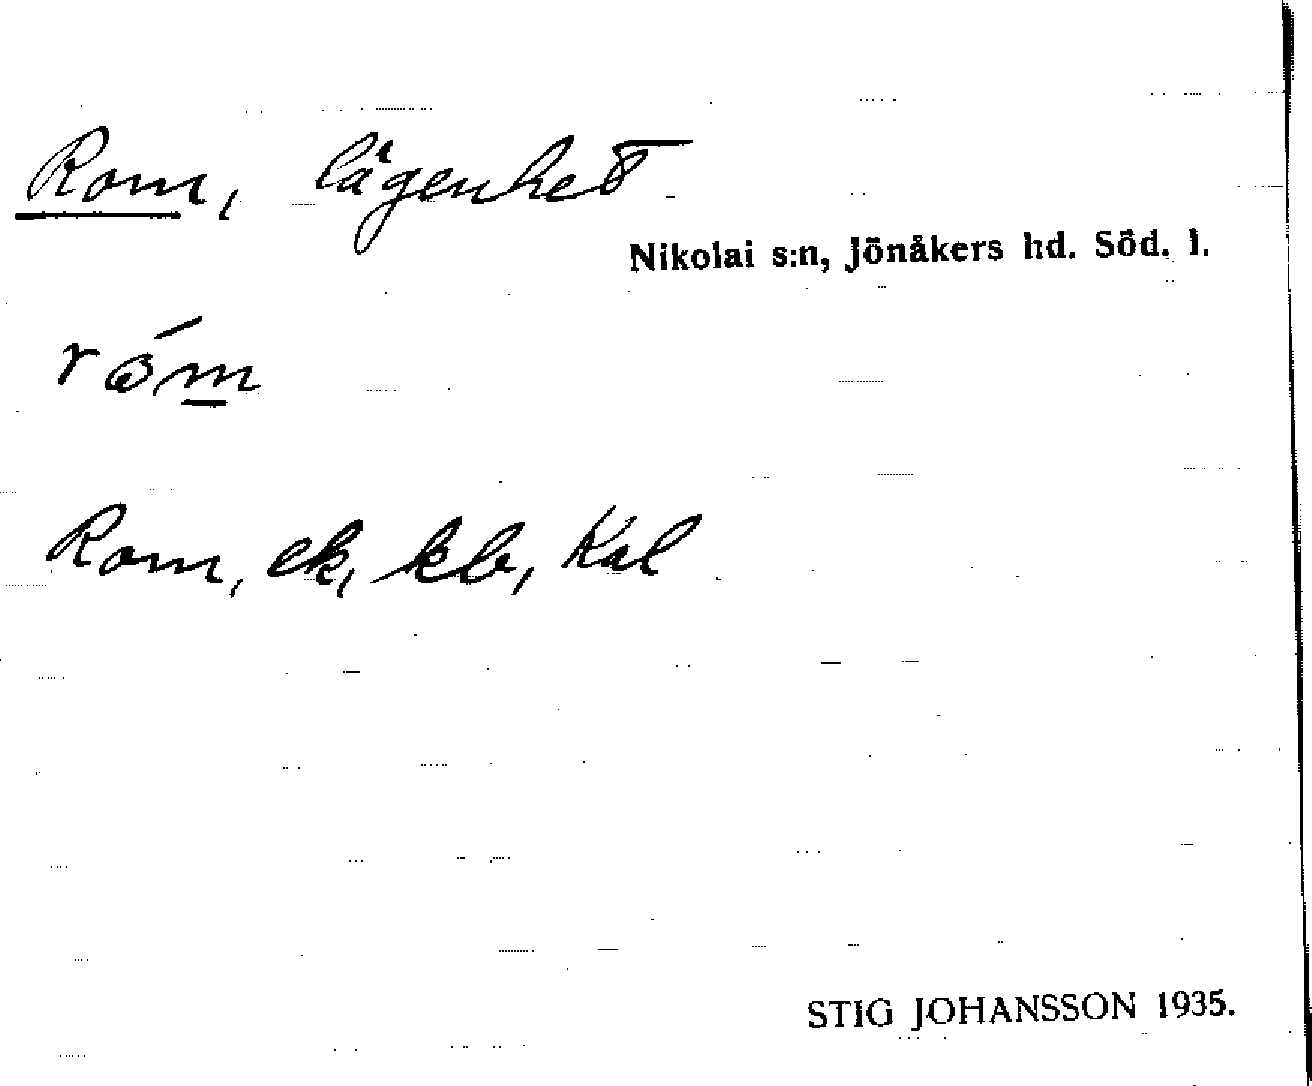 Rom, lägenhet
Nikolai s:n, Jönåkers hd. Söd. l.
róm
Rom, ek, kb, Kal
STIG JOHANSSON 1935.